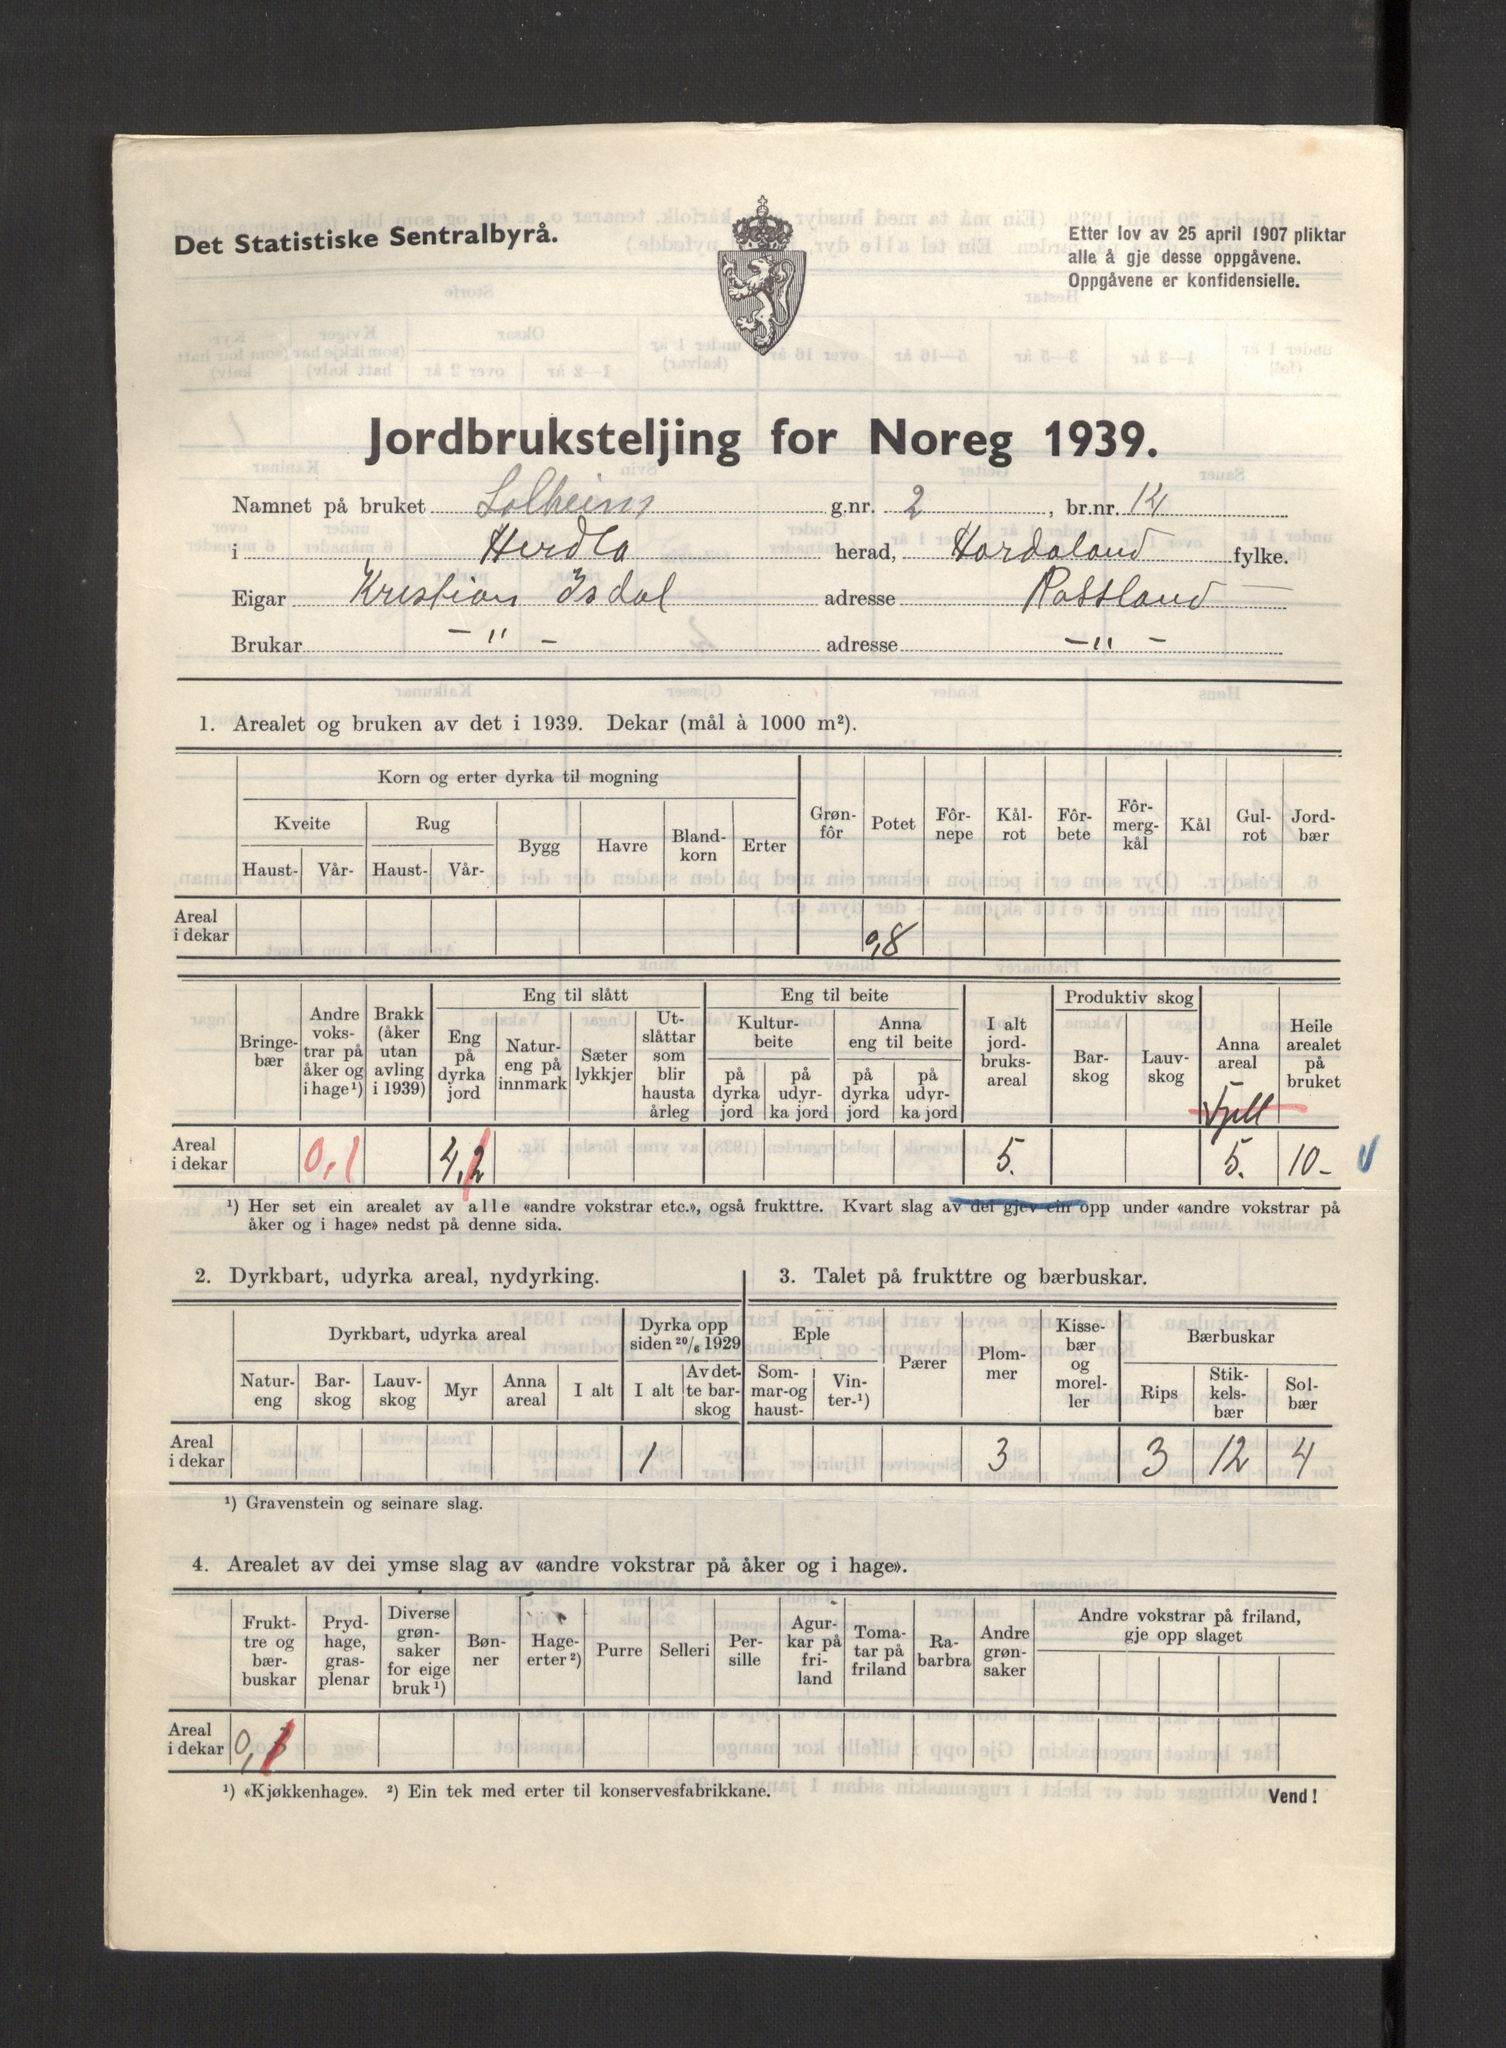 Det Statistiske Sentralbyrå.
Etter lov av 25 april 1907 pliktar
alle å gje desse oppgåvene.
Oppgåvene er konfidensielle.
Jordbruksteljing for Noreg 1939.
Namnet på bruket Solheim g.nr. 2, br.nr. 14
i Herdla herad, Hordaland fylke.
Eigar Kristian Isdal adresse Rossland
Brukar – " – adresse – " –
1. Arealet og bruken av det i 1939. Dekar (mål à 1000 m²).
Korn og erter dyrka til mogning
Kveite
Haust-
Vår-
Rug
Haust-
Vår-
Bygg
Havre
Bland-
korn
Erter
Grøn-
fôr
Potet
Fôr-
nepe
Kål-
rot
Fôr-
bete
Fôr-
merg-
kål
Kål
Gul-
rot
Jord-
bær
Areal
i dekar
0,8
Bringe-
bær
Andre
voks-
trar på
åker og
i hage¹)
Brakk
(åker
utan
avling
i 1939)
Eng til slått
Eng
på
dyrka
jord
Natur-
eng på
innmark
Sæter
lykkjer
Ut-
slåttar
som
blir
hausta
årleg
Eng til beite
Kultur-
beite
på
dyrka
jord
på
udyr-
ka jord
Anna
eng til beite
på
dyrka
jord
på
udyr-
ka jord
I alt
jord-
bruks-
areal
Produktiv skog
Bar-
skog
Lauv-
skog
Anna
areal
Fjell
Heile
arealet
på
bruket
Areal
i dekar
0,1
4,2
5.
5.
10-
¹) Her set ein arealet av alle «andre vokstrar etc.», også frukttre. Kvart slag av dei gjev ein opp under «andre vokstrar på
åker og i hage» nedst på denne sida.
2. Dyrkbart, udyrka areal, nydyrking.
Dyrkbart, udyrka areal
Natur-
eng
Bar-
skog
Lauv-
skog
Myr
Anna
areal
I alt
Dyrka opp
siden 20/6 1929
I alt
Av det-
te bar-
skog
3. Talet på frukttre og bærbuskar.
Eple
Som-
mar-og
haust-
Vin-
ter-¹)
Pærer
Plom-
mer
Kisse-
bær
og
morel-
ler
Bærbuskar
Rips
Stik-
kels-
bær
Sol-
bær
Areal
i dekar
1
3
3
12
4
¹) Gravenstein og seinare slag.
4. Arealet av dei ymse slag av «andre vokstrar på åker og i hage».
Frukt-
tre og
bær-
buskar
Pryd-
hage,
gras-
plenar
Diverse
grøn-
saker
for eige
bruk¹)
Bøn-
ner
Hage-
erter²)
Purre
Selleri
Per-
sille
Agur-
kar på
fri-
land
Toma-
tar på
friland
Ra-
barbra
Andre
grøn-
saker
Andre vokstrar på friland,
gje opp slaget
Areal
i dekar
0,1
¹) «Kjøkkenhage». ²) Ein tek med erter til konservesfabrikkane.
Vend!